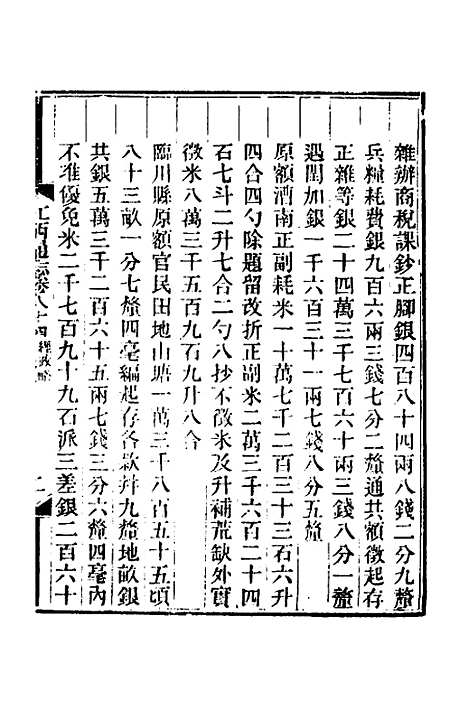 雜辦商稅課鈔正腳銀四百八十四兩八錢二分九釐
兵糧耗費銀九百六兩三錢七分二釐通共額徵起存
正雜等銀二十四萬三千七百六十兩三錢八分一釐
遇閏加銀一千六百三十一兩七錢八分五釐
原額漕南正副耗米一十萬七千二百三十三石六升
四合四勺除題留改折正副米二萬三千六百二十四
石七斗二升七合二勺八抄不徵米及升補荒缺外實
徵米八萬三千五百九石九升八合
臨川縣原額官民田地山塘一萬三千八百五十五頃
八十三畝一分七釐四毫編起存各款幷九釐地畝銀
共銀五萬三千二百六十五兩七錢三分六釐四毫內
不准優免米二千七百九十九石派三差銀二百六十
江西通志卷八十四 經政略 二